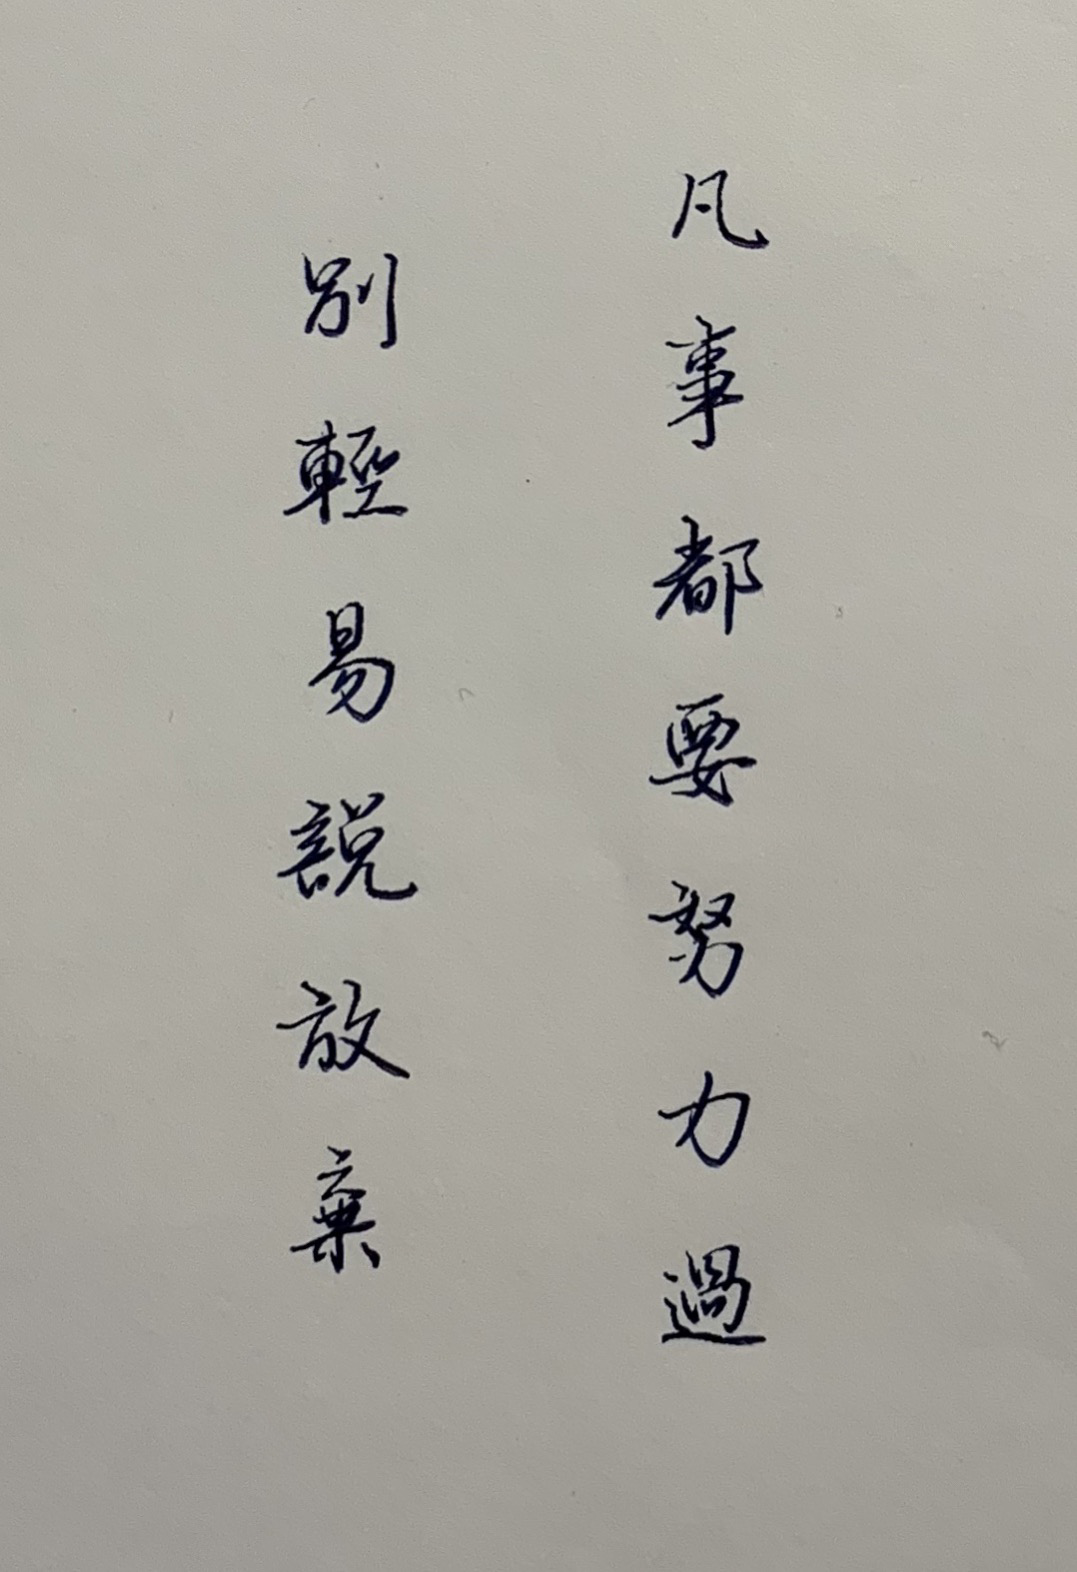 凡事都要努力過
別輕易說放棄